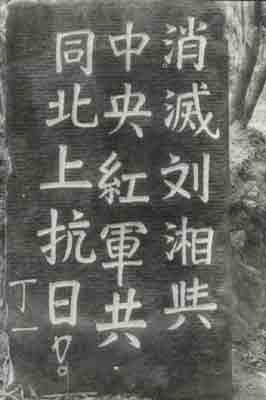 消滅刘湘與
中央紅軍共
同北上抗日。
丁一